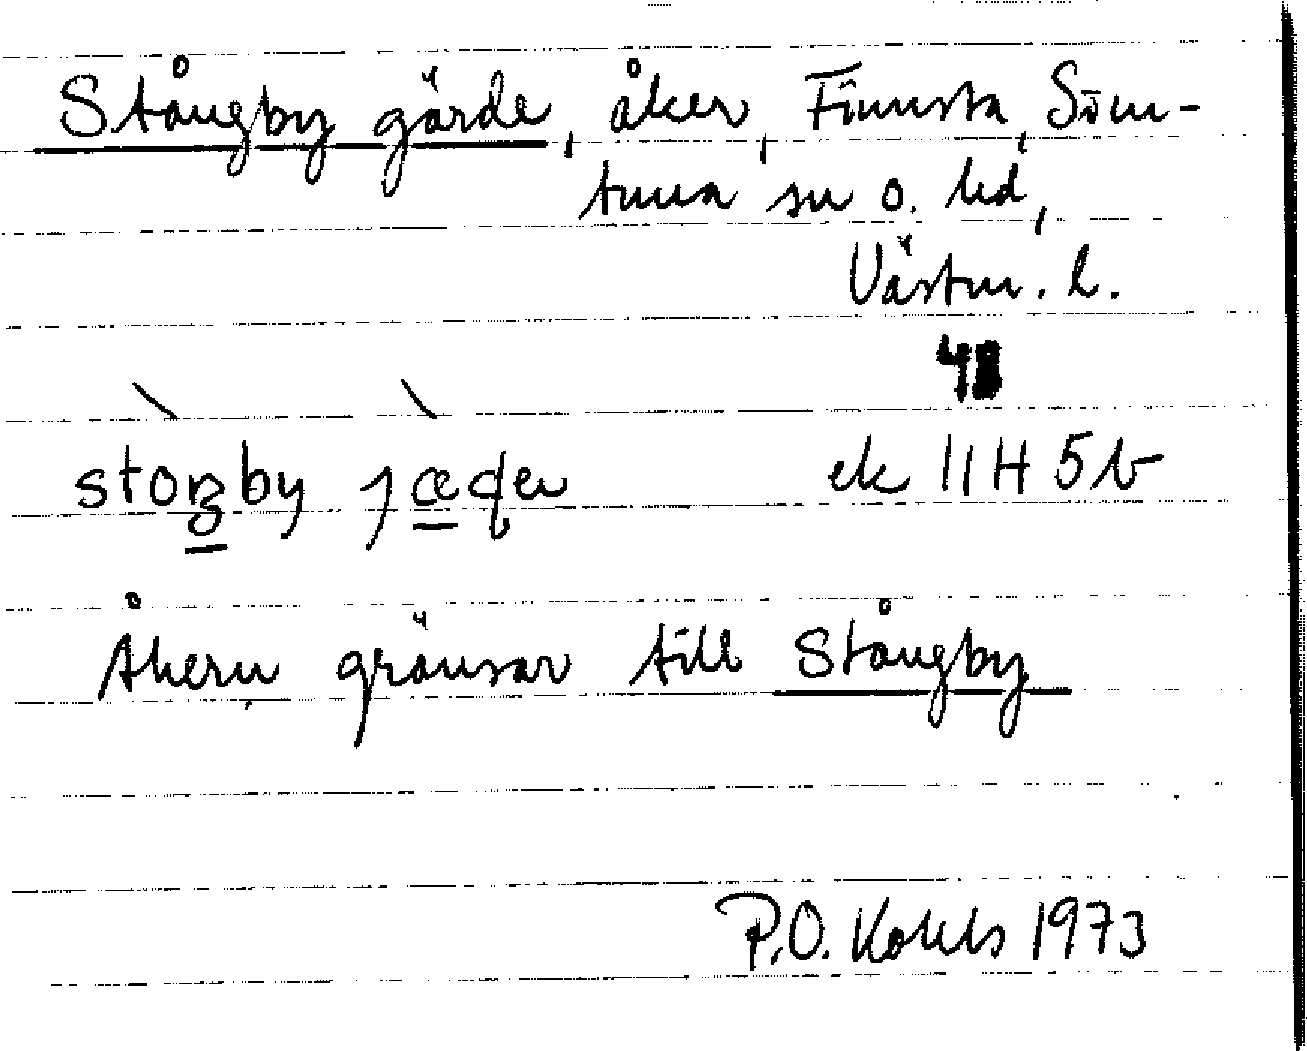 Stångby gärde, åker, Finnsta, Sim-
tuna sn o. hd,
Västm. l.
ek 11H 5b
Åkern gränsar till Stångby
P.O. Kohls 1973